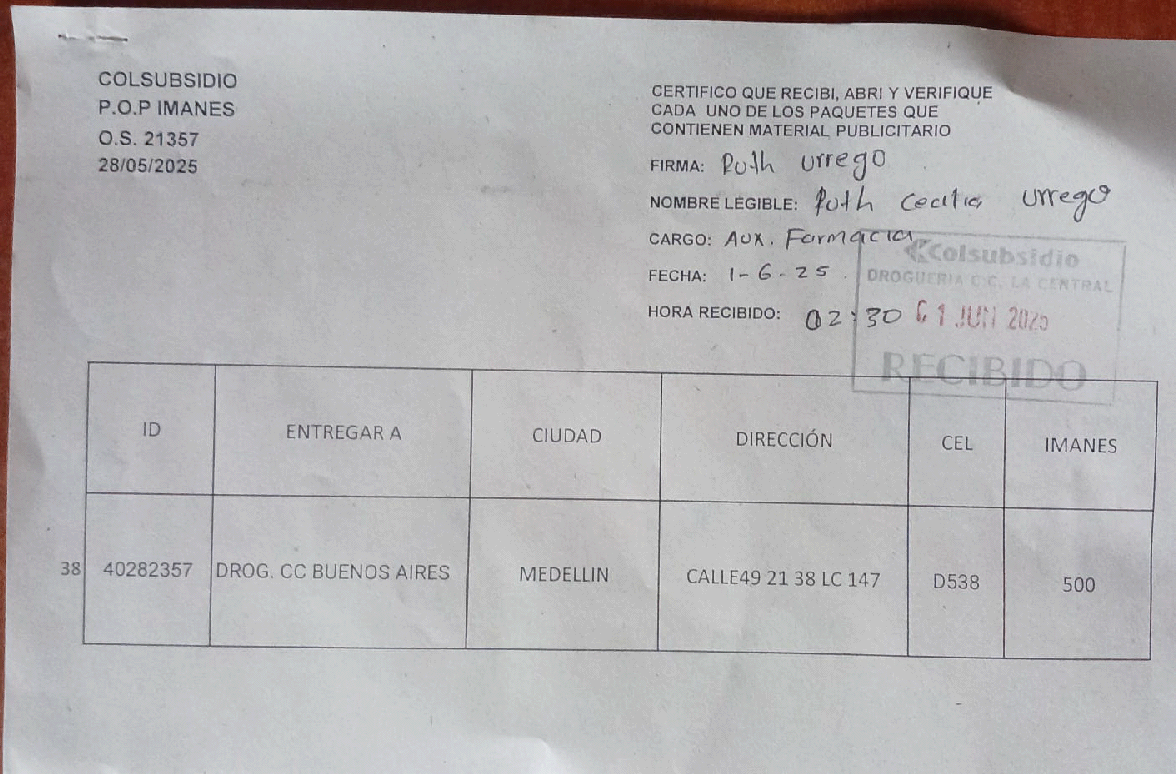 COLSUBSIDIO
P.O.P IMANES
O.S. 21357
28/05/2025
CERTIFICO QUE RECIBI, ABRI Y VERIFIQUE
CADA UNO DE LOS PAQUETES QUE
CONTIENEN MATERIAL PUBLICITARIO
FIRMA: Ruth Urrego
NOMBRE LEGIBLE: Ruth Cecilia Urrego
CARGO: Aux. Farmacia
FECHA: 1-6-25
HORA RECIBIDO: 02:30
Colsubsidio
DROGUERIA C.C. LA CENTRAL
01 JUN 2025
RECIBIDO
ID ENTREGAR A CIUDAD DIRECCIÓN CEL IMANES
38 40282357 DROG. CC BUENOS AIRES MEDELLIN CALLE49 21 38 LC 147 D538 500